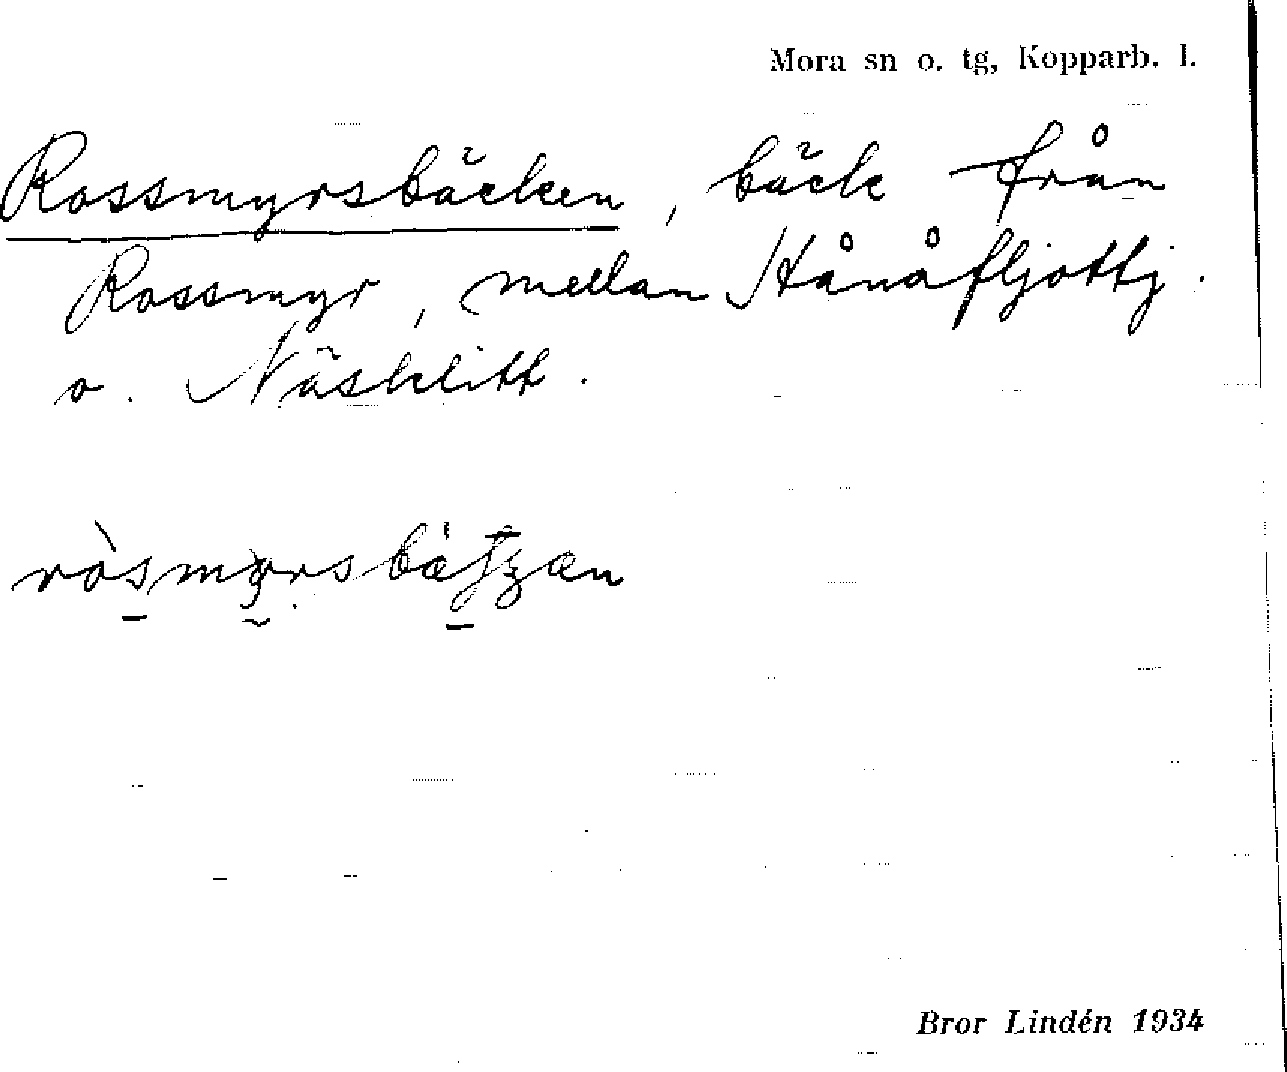 Mora sn o. tg, Kopparb. l.
Rossmyrsbäcken, bäck från
Rossmyr, mellan Hånåfljottj.
o. Näsklitt.
Bror Lindén 1934